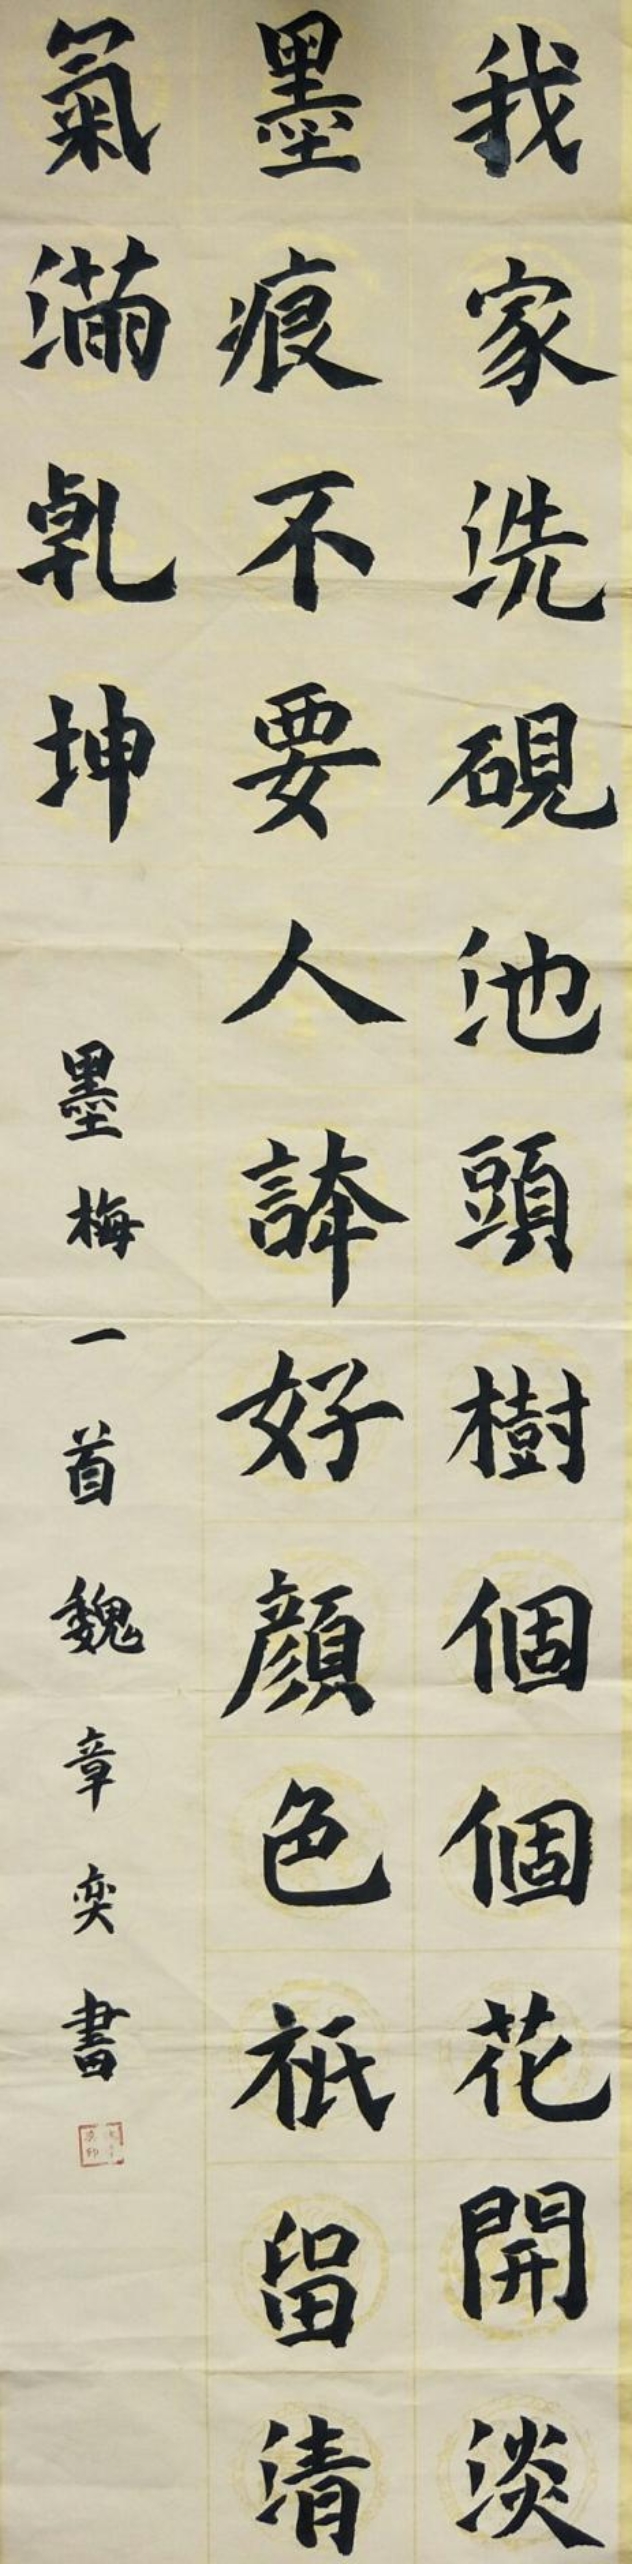 我家洗硯池頭樹個個花開淡
墨痕不要人誇好顏色祇留清
氣滿乾坤
墨梅一首魏章奕書